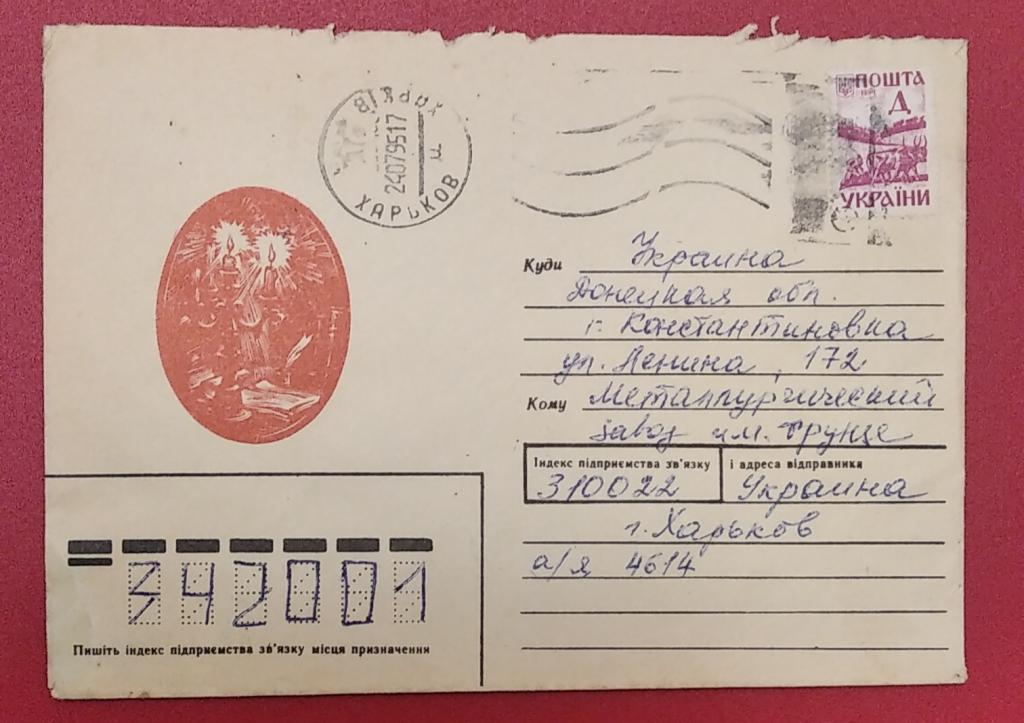 ХАРКІВ
24079517
ХАРЬКОВ
П
ПОШТА
Д
УКРАЇНИ
Куди Украина
Донецкая обл.
г. Константиновка
ул. Ленина, 172
Кому Металлургический
завод им. Фрунзе
Індекс підприємства зв'язку і адреса відправника
310022 Украина
г. Харьков
а/я 4614
342001
Пишіть індекс підприємства зв'язку місця призначення